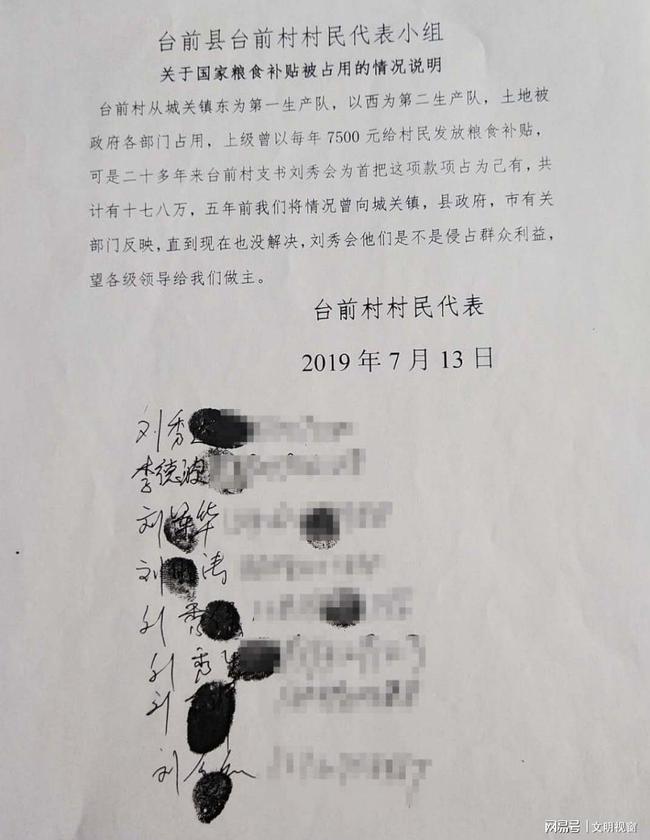 台前县台前村村民代表小组
关于国家粮食补贴被占用的情况说明
台前村从城关镇东为第一生产队，以西为第二生产队，土地被
政府各部门占用，上级曾以每年 7500 元给村民发放粮食补贴，
可是二十多年来台前村支书刘秀会为首把这项款项占为己有，共
计有十七八万，五年前我们将情况曾向城关镇，县政府，市有关
部门反映，直到现在也没解决，刘秀会他们是不是侵占群众利益，
望各级领导给我们做主。
台前村村民代表
2019 年 7 月 13 日
刘秀
李德波
刘 华
刘 涛
刘秀
刘秀
刘
刘
网易号 | 文明视窗